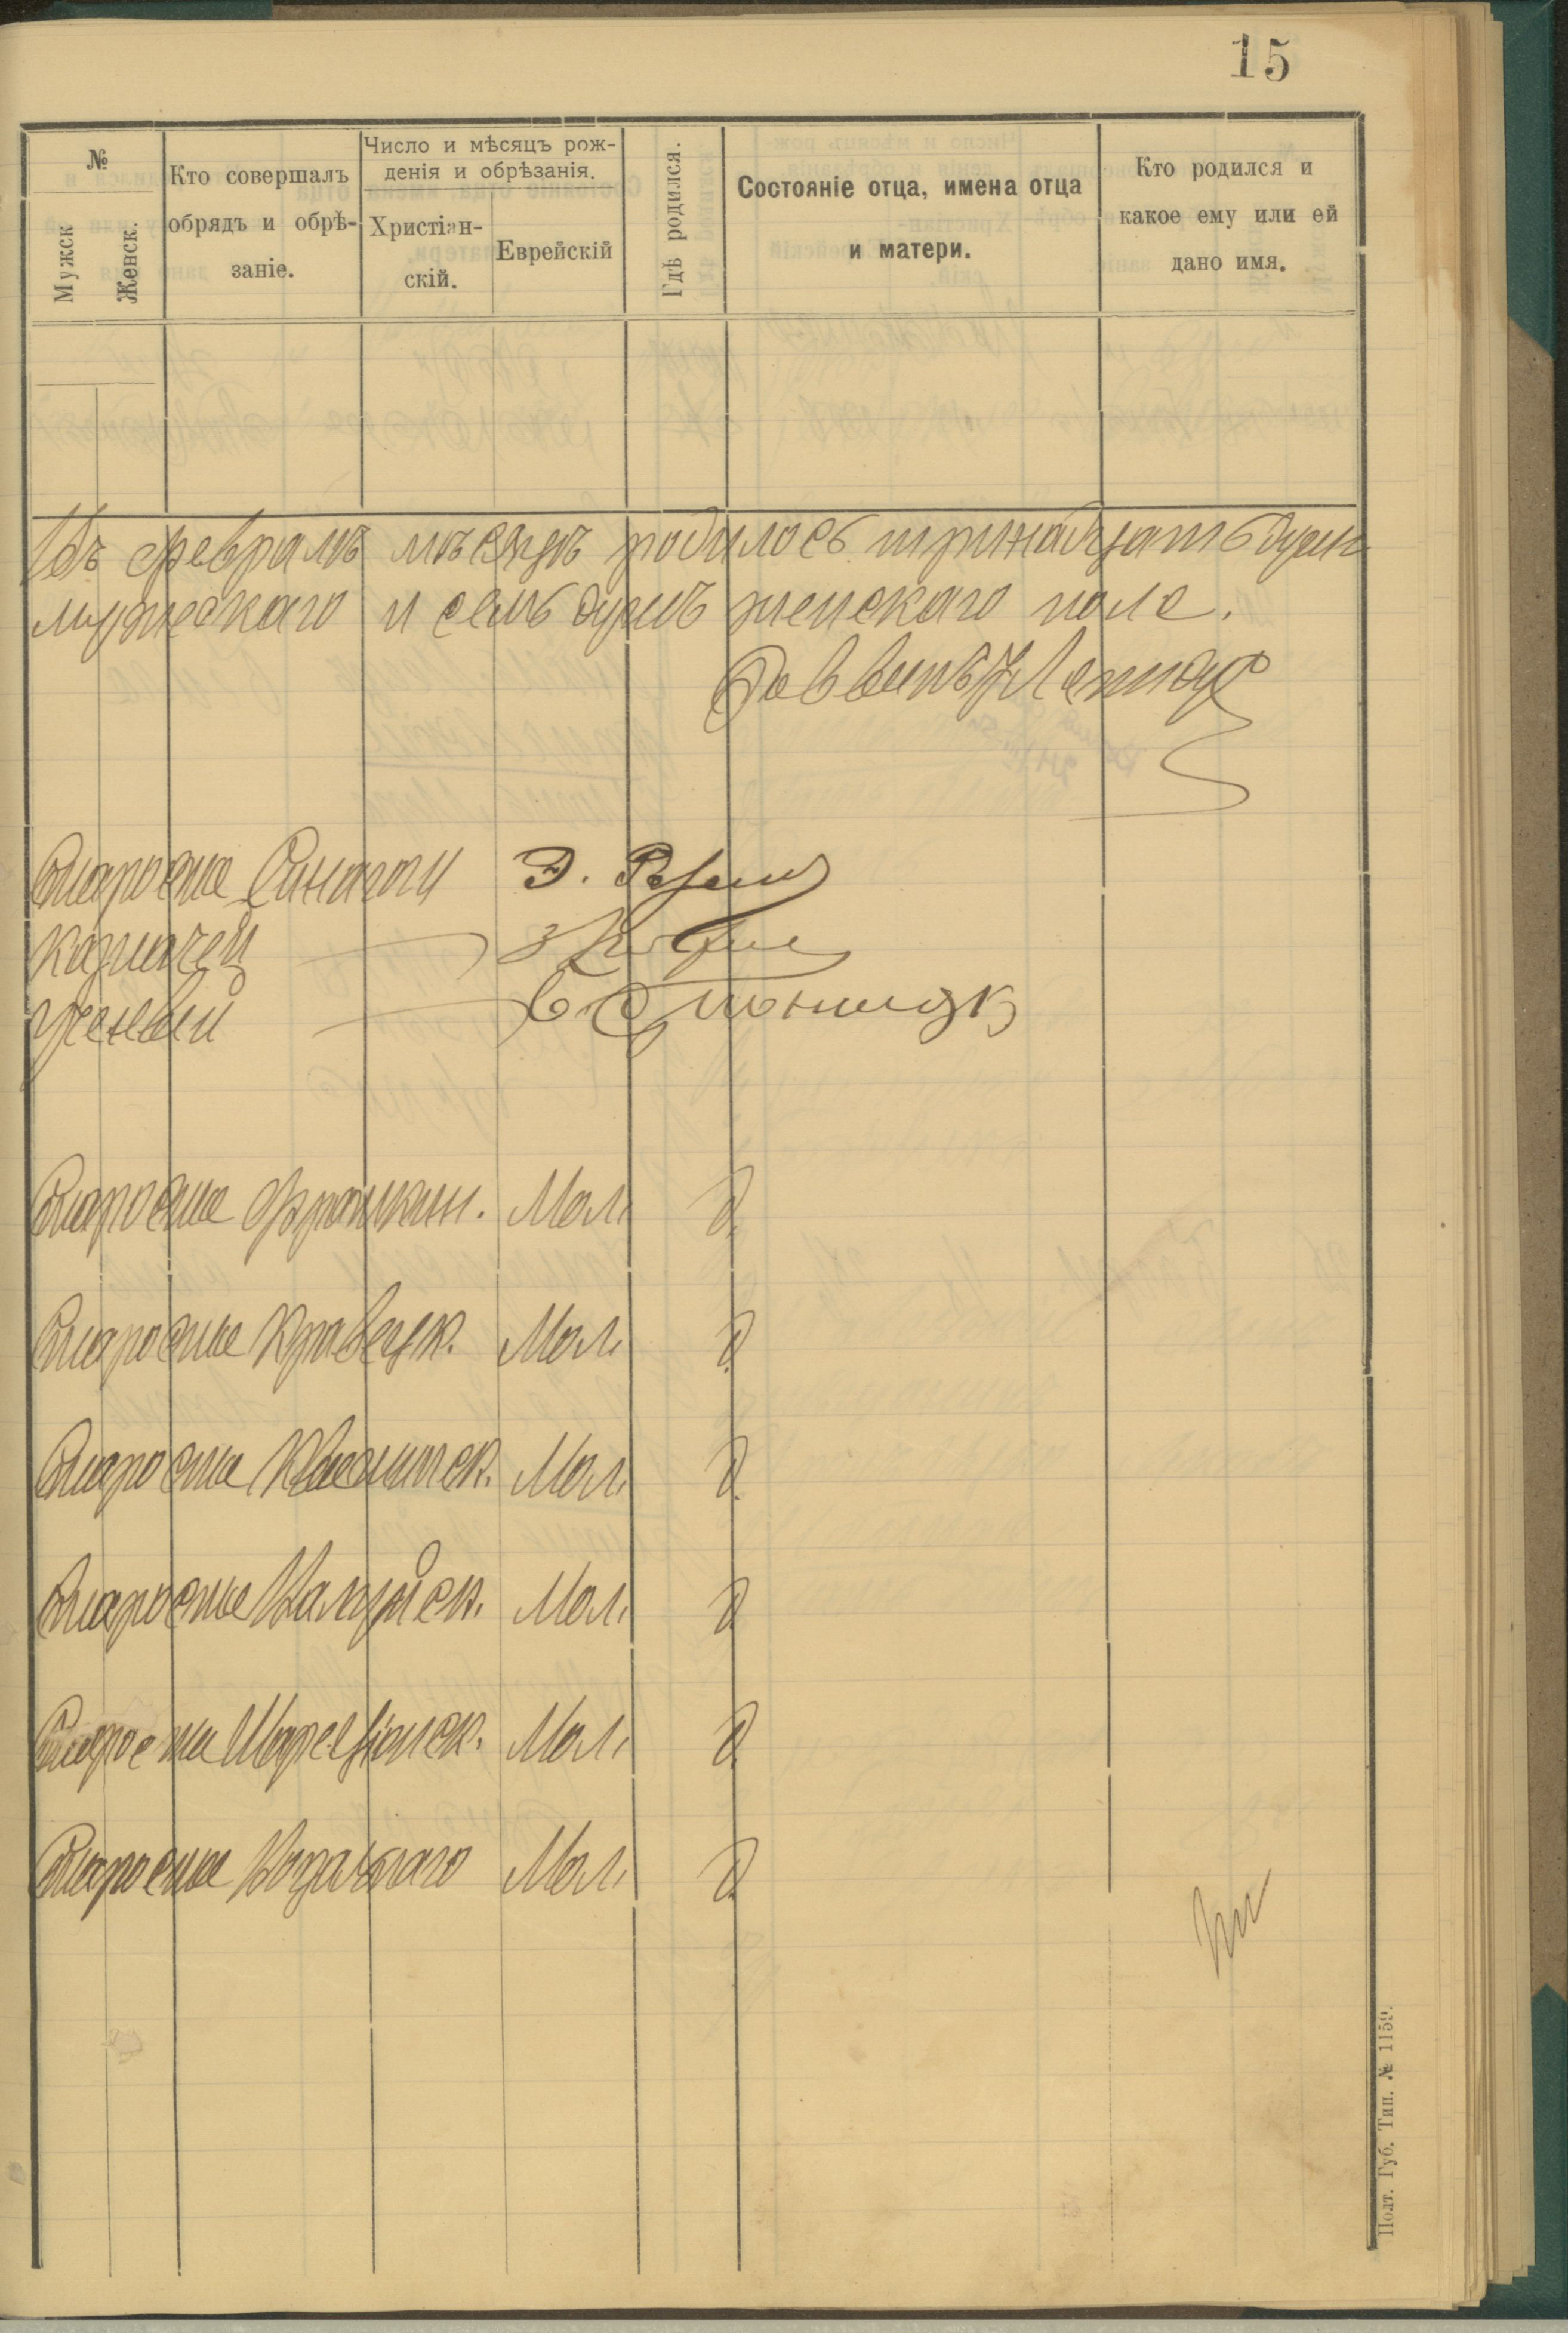 15
№
Мужск
Женск.
Кто совершалъ
обрядъ и обрѣ-
заніе.
Число и мѣсяцъ рож-
денія и обрѣзанія.
Христіан-
скій.
Еврейскій
Гдѣ родился.
Состояніе отца, имена отца
и матери.
Кто родился и
какое ему или ей
дано имя.
Въ февралѣ мѣсяцѣ родилось тринадцать душъ
мужескаго и семь душъ женскаго пола.
Раввинъ
Староста Синагоги Э.
Казначей
Ученый
Староста Мол. д.
Староста Кравецк. Мол. д.
Староста Мол. д.
Староста Мол. д.
Староста Мол. д.
Староста Мол. д.
Полт. Губ. Тип. № 1159.